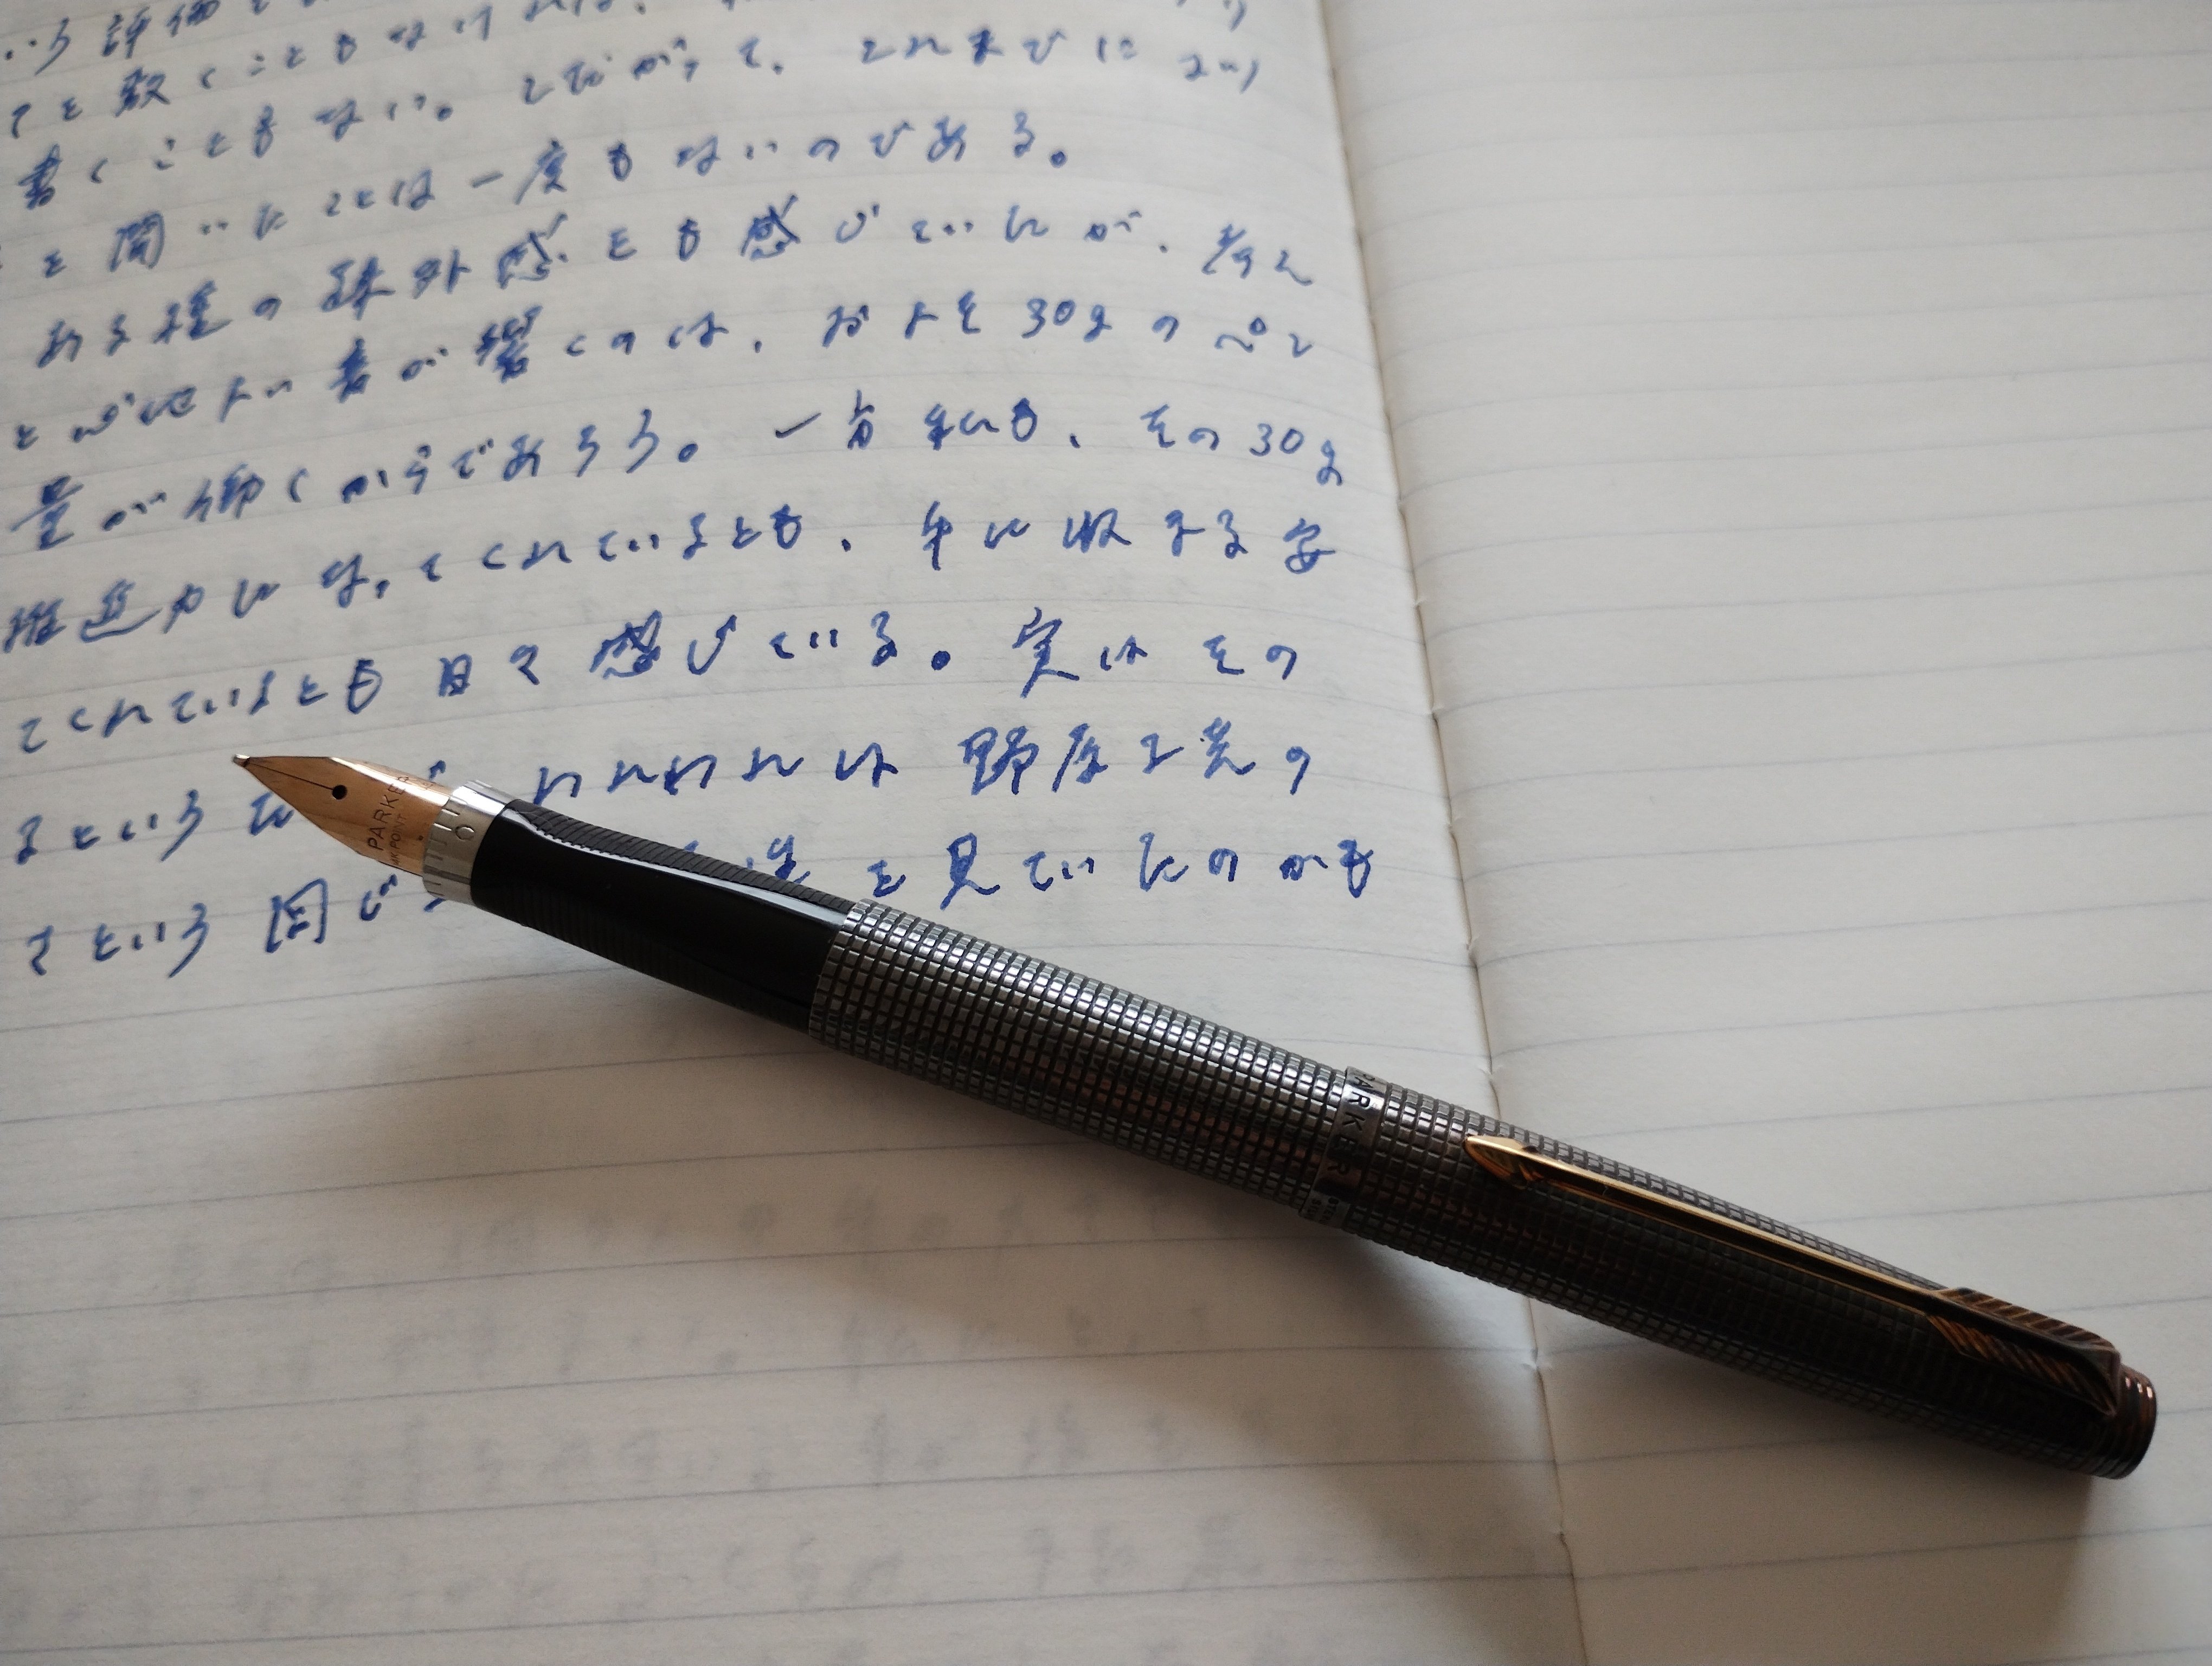 いう評価
を敢くこともなければ、
書くこともない。したがって、これまでに
を聞いたことは一度もないのである。
ある種の疎外感をも感じていたが、考え
心地よい音が響くのは、およそ30gのペン
量が働くからであろう。一方私も、その30g
推進力になってくれているとも、手に収まる安
てくれているとも日々感じている。実はその
るという われわれは野原工芸の
という同じ を見ていたのかも
PARKER
PARKER